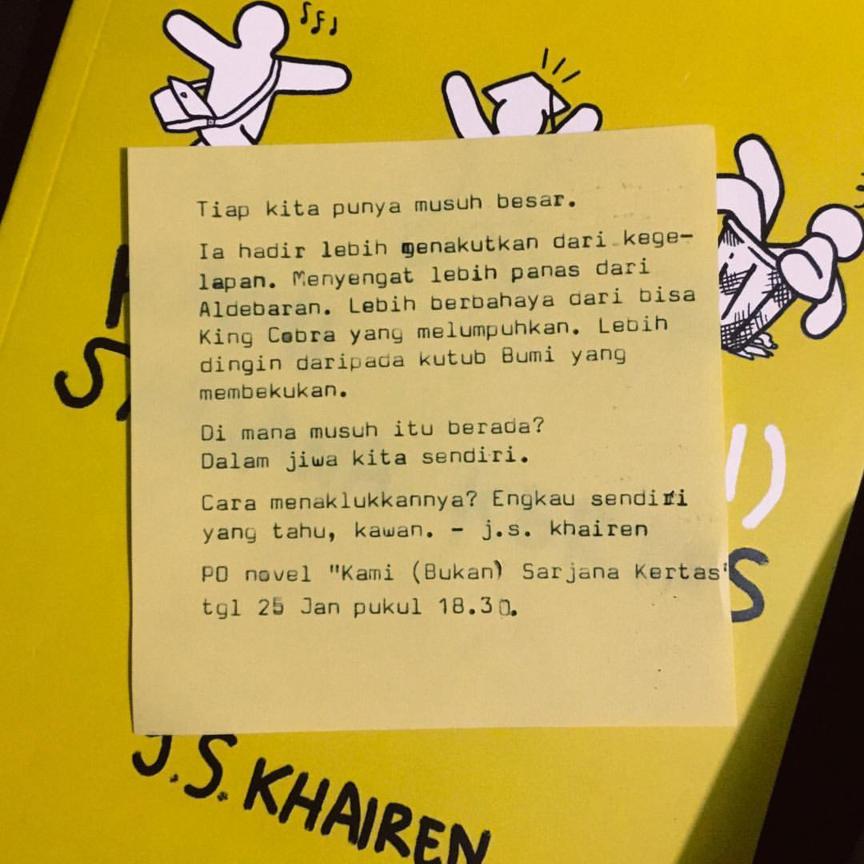 Tiap kita punya musuh besar.
Ia hadir lebih menakutkan dari kege-
lapan. Menyengat lebih panas dari
Aldebaran. Lebih berbahaya dari bisa
King Cobra yang melumpuhkan. Lebih
dingin daripada kutub Bumi yang
membekukan.
Di mana musuh itu berada?
Dalam jiwa kita sendiri.
Cara menaklukkannya? Engkau sendiri
yang tahu, kawan. - j.s. khairen
PO novel "Kami (Bukan) Sarjana Kertas"
tgl 25 Jan pukul 18.30.
J.S. KHAIREN